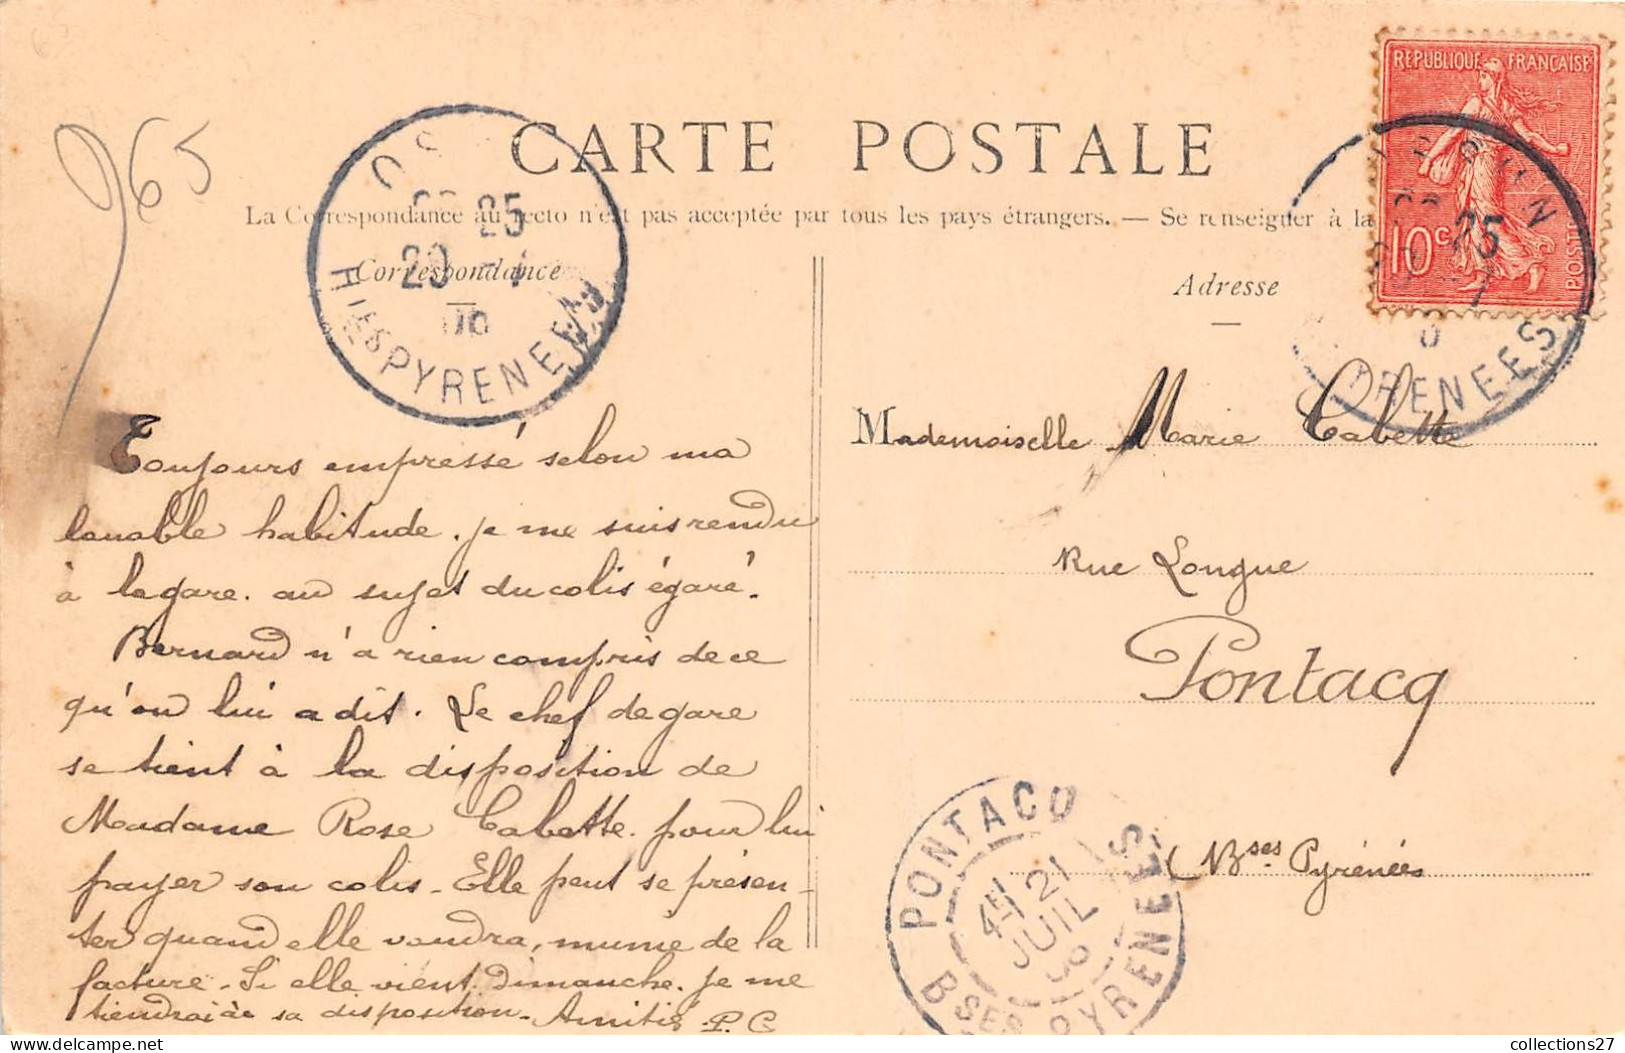 965
CARTE POSTALE
La Correspondance au recto n'est pas acceptée par tous les pays étrangers. — Se renseigner à la
Correspondance
Adresse
REPUBLIQUE FRANÇAISE
10c
POSTES
25
20
06
HTES PYRENEES
25
YRENEES
Toujours empressé selon ma
louable habitude, je me suis rendu
à la gare. au sujet du colis égaré.
Bernard n'a rien compris de ce
qu'on lui a dit. Le chef de gare
se tient à la disposition de
Madame Rose Cabette pour lui
payer son colis. Elle peut se présen-
ter quand elle voudra, munie de la
facture. Si elle vient Dimanche, je me
tiendrai à sa disposition. Amitiés P.C
Mademoiselle Marie Cabette
Rue Longue
Pontacq
(Bses Pyrénées
PONTACQ
21
JUIL
BSES PYRENEES
collections27